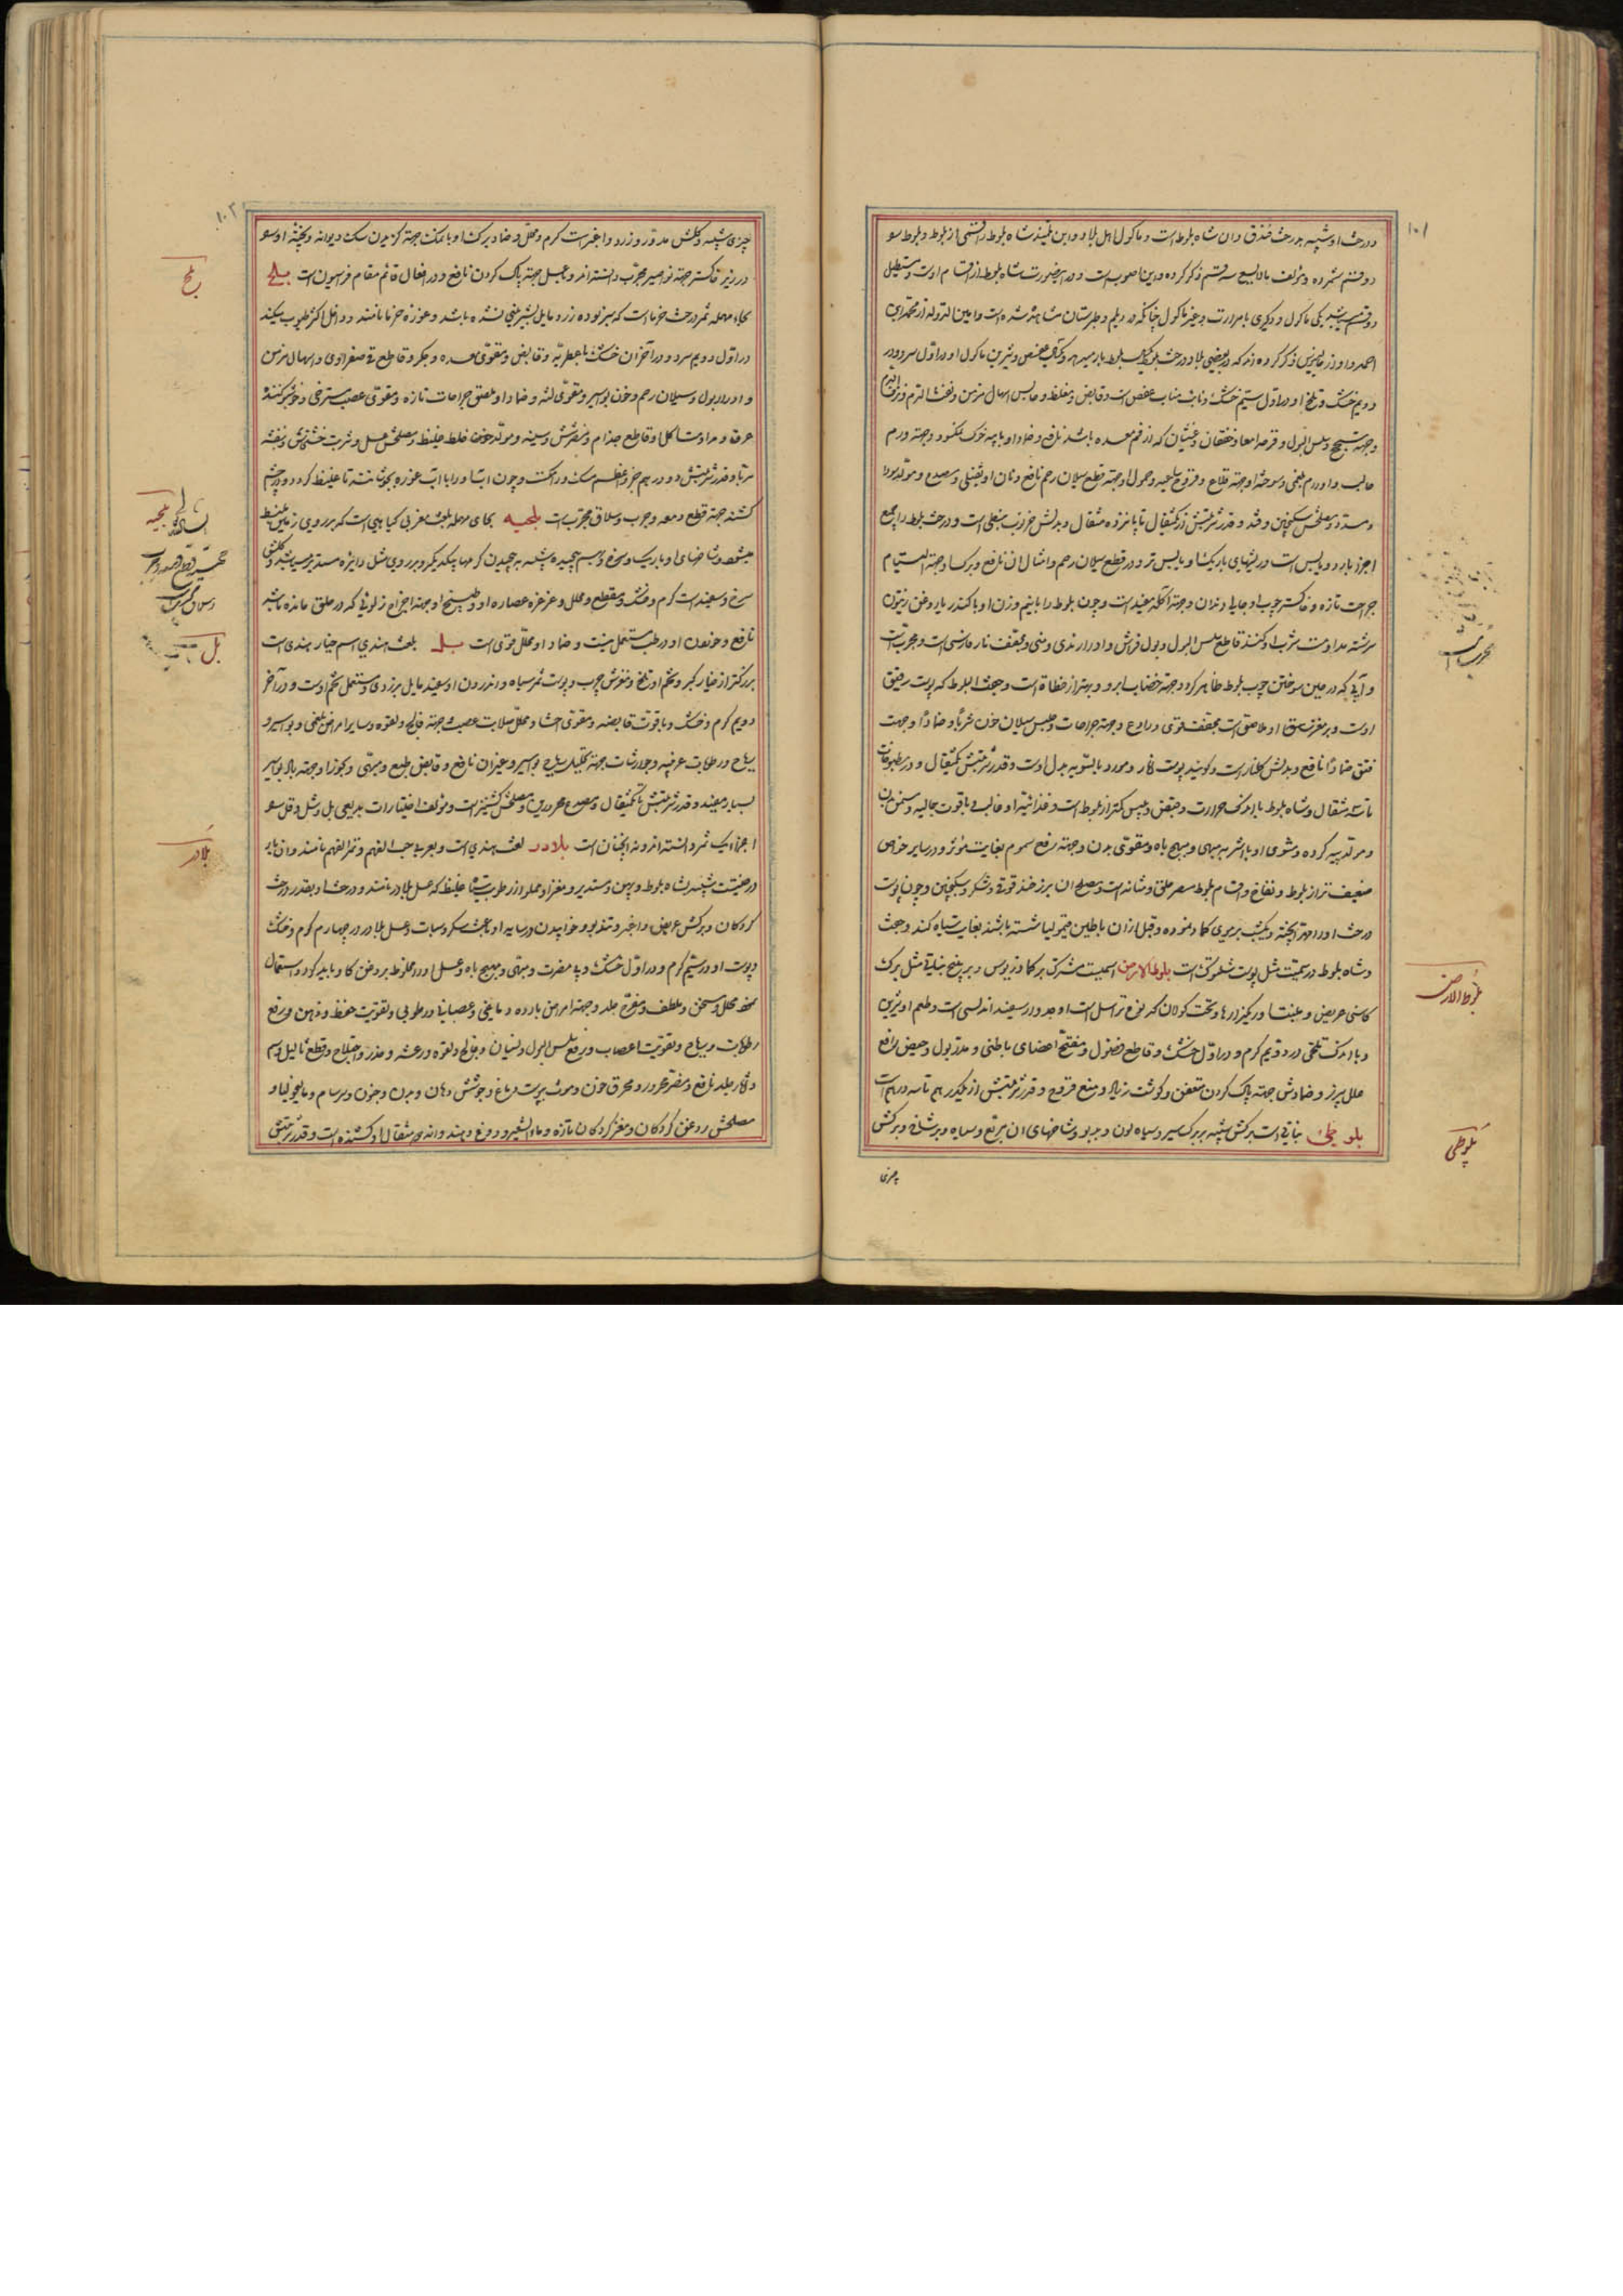 ۱۰۱
و درخت او شبیه بدرخت فندق و ان شاه بلوط است و ماکول اهل بلاد و ابن تلمیذ شاه بلوط را قسمی از بلوط و بلوط سو
دو قسم شمرده و مؤلف مالایسع سه قسم ذکر کرده و این اصوبست و در این صورت شاه بلوط از اقسام اوست و مستطیل
دو قسم میباشد یکی ماکول و دیگری با مرارت و غیر ماکول چنانکه در دیلم و طبرستان مشاهده شده است و امین الدوله از محمد بن
احمد و او از جالینوس ذکر کرده اند که در بعضی بلاد درخت بلوط یکسال بلوط بار میدهد و یکسال عفص و شیرین ماکول او در اول سرد و در
دویم خشک و تلخ او در اول سیم خشک و نایب مناب عفص است و قابض و مغلظ و حابس اسهال مزمن و نفث الدم و نزف الدم
و جهت سحج و سلس البول و قرحه امعا و خفقان و غشیان که از فم معده باشد نافع و ضماد او با پیه خوک نمکسود و جهت ورم
صلب و اورام بلغمی و سوخته او جهت قلاع و قروح ساعیه و حمول او جهت قطع سیلان رحم نافع و نان او نفیل و مصدع و مولد سودا
و مسدد و مصلحش سکنجبین و قند و قدر شربتش از یکمثقال تا پانزده مثقال و بدلش خرنوب نبطی است و درخت بلوط را جمیع
اجزا بارد و یابس است و ریشهای باریک او یابس تر و در قطع سیلان رحم و امثال ان نافع و برک او جهت التیام
جراحت تازه و خاکستر چوب او جالی دندان و جهت اکله مفید است و چون بلوط را با نیم وزن او با کندر با روغن زیتون
سرشته مداومت شرب او کنند قاطع سلس البول و بول فراش و ادرار ندی و منی و مجفف نار فارسی است و مجرب است
و آبی که در حین سوختن چوب بلوط ظاهر کردد جهت خضاب ابرو و بهتر از خطاة است و جفت البلوط که پوست رقیق
اوست و بر مغز ملصق است مجفف قوی و رادع و جهت جراحات و حبس سیلان خون شربا و ضمادا و جهت
فتق ضمادا نافع و بدلش کلنار است و کویند پوست انار و مورد بالسویه بدل اوست و قدر شربتش یکمثقال و در مطبوخات
تا سه مثقال و شاه بلوط با اندک حرارت و قبض و یبس کمتر از بلوط است و غذائیة او غالب با قوت جالیه و مسمن بدن
و مولد پیه کرده و مشوی او با شکر مبهی و مهیج باه و مقوی بدن و جهت رفع سموم بغایت مؤثر و در سایر خواص
ضعیف تر از بلوط و نفاخ و اقسام بلوط مضر حلق و مثانه است و مصلح ان بریز خند قوقی و شکر و سکنجبین و چون پوست
درخت او را مهرا پخته و یکشب بر موی کماد نموده و قبل از ان با طین قیمولیا شسته باشند بغایت سیاه کند و جفت
و شاه بلوط در سمیت مثل پوست شلتوک است بلوط الارض اسمیست مشترک بر کمادریوس و بر بیخ نباتی مثل برک
کاسنی عریض و منبتش اوریکزارها و تحت کودان که نوعی از اسل است او مدور و سفید اندلسی است و طعم او شیرین
و با اندک تلخی در دویم کرم و در اول خشک و قاطع فضول و مفتح اعضای باطنی و مدر بول و حیض و رافع
علل سپرز و ضمادش جهت پاک کردن متعفن و کوشت زیاد و منع قروح و قدر شربتش از یکدرهم تا سه درهم است
بلوطی نباتی است برکش شبیه ببرک سیر و سیاه لون و بدبو و شاخهای ان مربع و سیاه و پرشاخ و برکش
چیزی
مجرب است
بلوط الارض
بلوطی
۱۰۲
چیزی شبیه و کلش مدور و زرد و اغبر است کرم و محلل و ضماد برک او با نمک جهت کزیدن سک دیوانه و پخته او سو
در زیر خاکستر جهت بواسیر مجرب دانسته اند و با عسل جهت پاک کردن نافع و در افعال قائم مقام فراسیون است بلح
بحاء مهمله ثمر درخت خرماست که سبز بوده زرد مایل بشیرینی نشده باشد و غوره خرما نامند و داخل اکثر طیوب میکنند
در اول دویم سرد و در آخر ان خشک با عطریه و قابض و مقوی معده و جکر و قاطع قی صفراوی و اسهال مزمن
و ادرار بول و سیلان رحم و خون بواسیر و مقوی لثه و ضماد او ملصق جراحات تازه و مقوی عصب مسترخی و خوشبو کننده
عرق و مداومت اکل او قاطع جذام و مضر شش و سینه و مولد خون غلط غلیظ و مصلحش عسل و شربت خشخاش و بنفشه
مربا و قدر شربتش دو درهم
کشند جهت قطع دمعه و جرب و سلاق مجرب است بلحیه بحای مهمله بلغت مغربی کیاهی است که بر روی زمین منبسط
میشود و شاخهای او باریک و سرخ و بهم پیچیده شبیه به پیچیدن کرمها بیکدیکر و بر روی مثل دایره مستدیر میباشد و کلش
سرخ و سفید است کرم و خشک و مقطع و محلل و غرغره عصاره او و طبیخ او جهت اخراج زلوئی که در حلق مانده باشد
نافع و خوردن او در طب مستعمل نیست و ضماد او محلل قوی است بل بلغت هندی اسم خیار هندی است
بزرکتر از خیار کبر و تخم او تلخ و مغزش چرب و پوست ثمر سیاه و اندرون او سفید مایل بزردی و مستعمل تخم اوست و در آخر
دویم کرم و خشک و با قوت قابضه و مقوی احشا و محلل صلابت عصب و جهت فالج و لقوه و سایر امراض بلغمی و بواسیر و
ریاح و رطوبات غریبه و جوارشات جهت تحلیل ریاح بواسیر و غیر ان نافع و قابض طبع و مبهی و بخور او جهت باد بواسیر
بسیار مفید و قدر شربتش تا یکمثقال و مصدع محرورین و مصلحش کشنیز است و مؤلف اختیارات بدیعی بل و شل و فل سو
اجزا یک ثمر دانسته اند و نه انچنان است بلادر لغت هندی است و بعربی حب الفهم و ثمر الفهم نامند و ان بار
درختیست شبیه بشاه بلوط و پهن و مستدیر و مغز او مملو از رطوبت سیاه غلیظ که عسل بلادر نامند و درخت او بقدر درخت
کردکان و برکش عریض و اغبر و تندبو و خوابیدن در سایه او باعث سکر و سبات و عسل بلادر در چهارم کرم و خشک
و پوست او در سیم کرم و در اول خشک و بی مضرت و مبهی و مهیج باه و عسل او را مخلوط بروغن کاو باید کرد و استعمال
نمود محلل و مسخن و ملطف و مقرح جلد و جهت امراض بارده دماغی و عصبانی و رطوبی و تقویت حفظ و ذهن و رفع
رطوبات و ریاح و تقویت اعصاب و رفع سلس البول و نسیان و فالج و لقوه و رعشه و خدر و اختلاج و قطع ثالیل و وسم
و اثار جلد نافع و مضر محرور و محرق خون و مورث یبوست دماغ و جوشش دهان و بدن و جنون و برسام و مالیخولیا و
مصلحش روغن کردکان و مغز کردکان تازه و ماء الشعیر و دوغ و هندوانه و دو مثقال او کشنده است و قدر شربتش
بلح
بلحیه
بل
بلادر